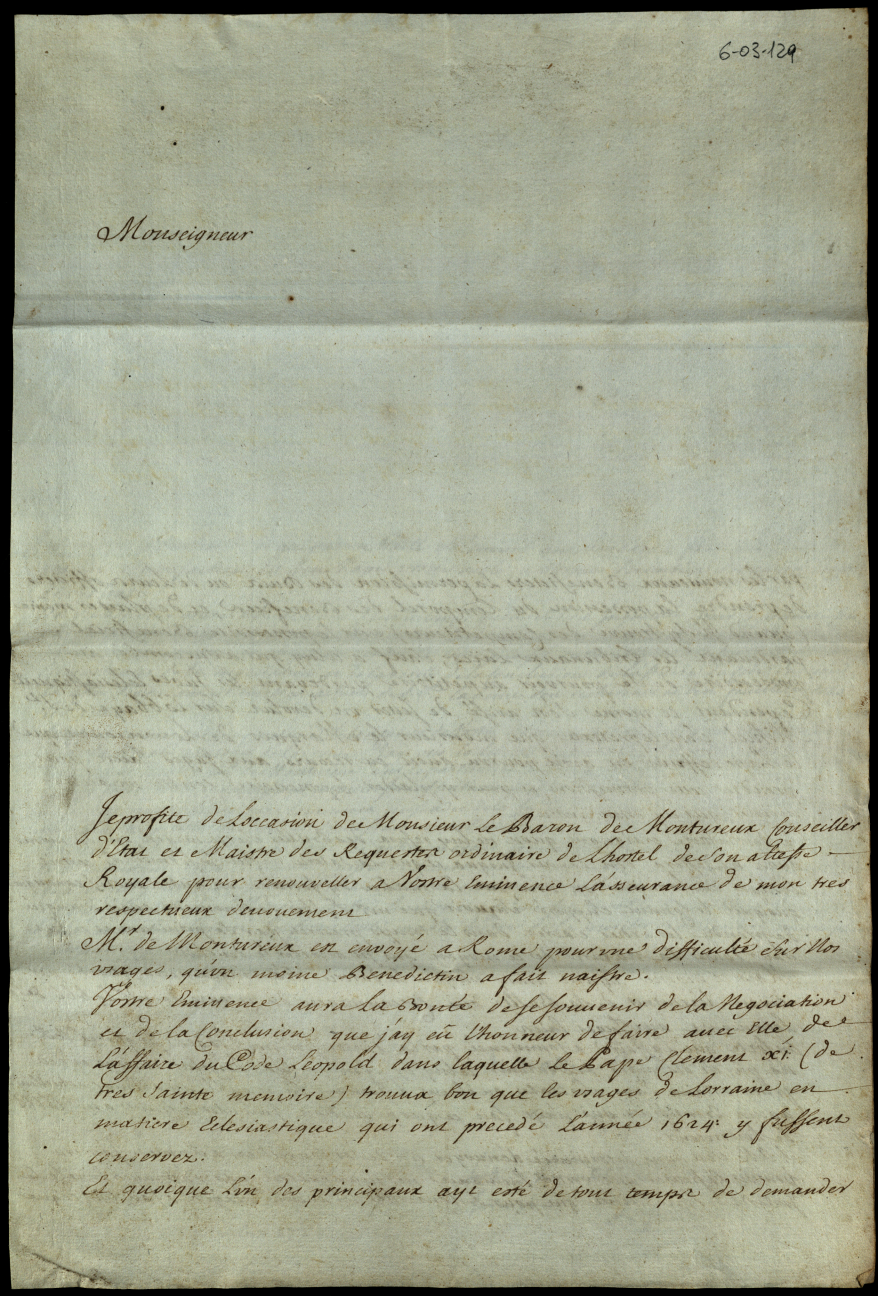 6-03-129
Monseigneur
Je profite de Loccasion de Monsieur Le Baron de Montureux Conseiller
d'Etat et Maistre des Requestes ordinaire de Lhostel de Son altesse
Royale pour renouveller a Vostre Eminence L'asseurance de mon tres
respectueux devouement
Mr. de Montureux est envoyé a Rome pour une difficulté sur Nos
usages, qu'un moine Benedictin a fait naistre.
Vostre Eminence aura La Bonté de se souvenir de la Negociation
et de la Conclusion que j'ay eü l'honneur de faire avec Elle de
L'affaire du Code Leopold dans laquelle le Pape Clement XI. (de
tres Sainte memoire) trouua bon que les usages de Lorraine en
matiere Eclesiastique qui ont precedé L'année 1624. y fussent
conservez.
Et quoique L'un des principaux ayt esté de tout temps de demander